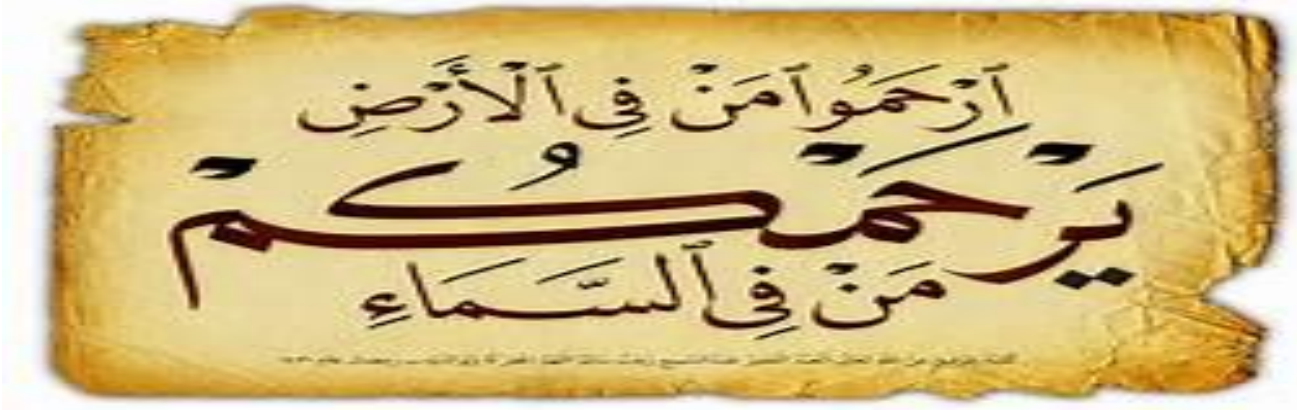 ٱرْحَمُوا۟ مَنْ فِي ٱلْأَرْضِ
يَرْحَمْكُمْ
مَنْ فِي ٱلسَّمَاءِ